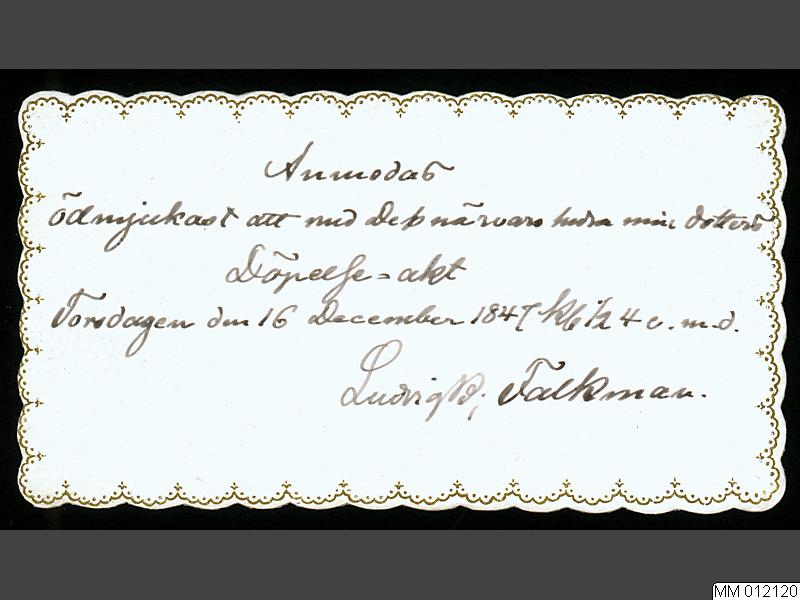 Anmodas
ödmjukast att med Deß närvaro hedra min dotters
Döpelse=akt
Torsdagen den 16 December 1847 kl ½ 4 e.m.d.
Ludvig B; Falkman.
MM 012120